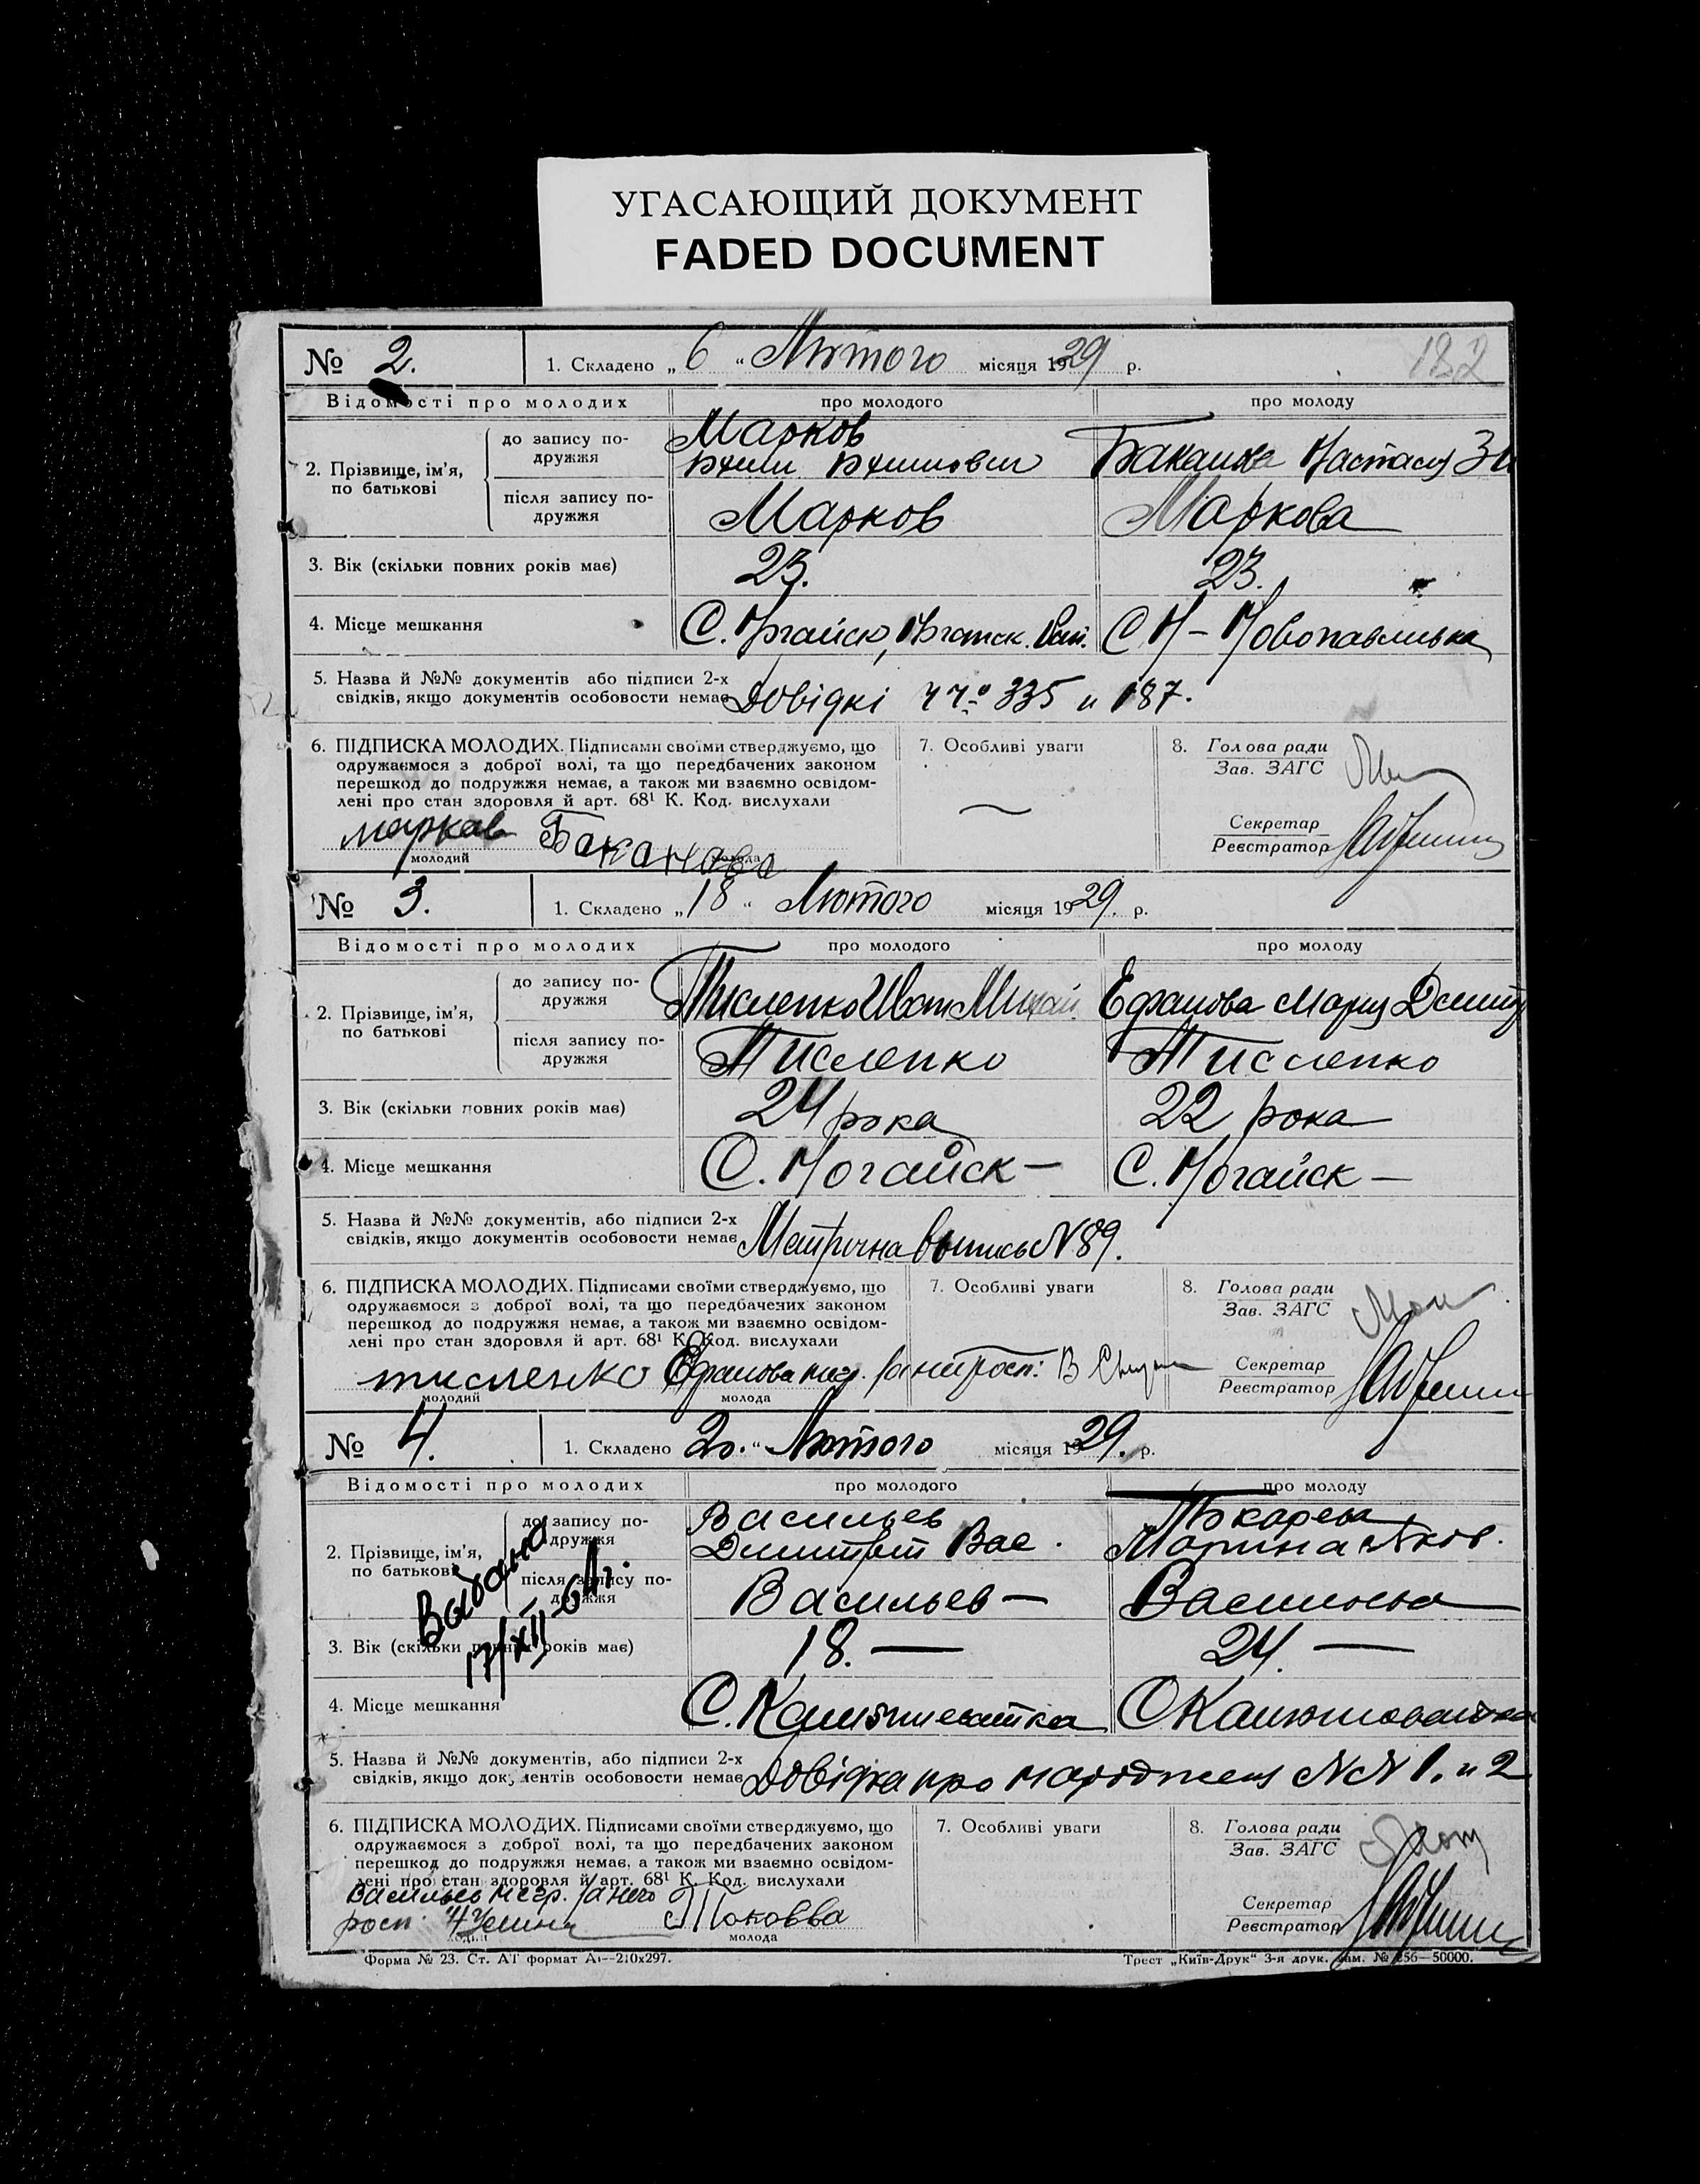 УГАСАЮЩИЙ ДОКУМЕНТ
FADED DOCUMENT
182
№ 2. 1. Складено „ 6 “ Лютого місяця 1929 р.
Відомості про молодих про молодого про молоду
2. Прізвище, ім’я, по батькові
до запису подружжя Марков Баканова Настасия
після запису по-дружжя Марков Маркова
3. Вік (скільки повних років має) 23. 23.
4. Місце мешкання С. С Н – Новопавлівка
5. Назва й №№ документів або підписи 2-х
свідків, якщо документів особовости немає Довідкі 335 и 187.
6. ПІДПИСКА МОЛОДИХ. Підписами своїми стверджуємо, що 7. Особливі уваги 8. Голова ради
одружаємося з доброї волі, та що передбачених законом Зав. ЗАГС
перешкод до подружжя немає, а також ми взаємно освідом-
лені про стан здоровля й арт. 68¹ К. Код. вислухали Секретар
марков Баканова Реєстратор
молодий молода
№ 3. 1. Складено „ 18 “ Лютого місяця 1929. р.
Відомості про молодих про молодого про молоду
2. Прізвище, ім’я, по батькові
до запису по-дружжя Тисленко Иван Михай. Ефанова Мария Дмит
після запису по-дружжя Тисленко Тисленко
3. Вік (скільки повних років має) 24 рока 22 рока
4. Місце мешкання С. Ногайск – С. Ногайск –
5. Назва й №№ документів, або підписи 2-х
свідків, якщо документів особовости немає Метрична выпись N 89.
6. ПІДПИСКА МОЛОДИХ. Підписами своїми стверджуємо, що 7. Особливі уваги 8. Голова ради
одружаємося з доброї волі, та що передбачених законом Зав. ЗАГС
перешкод до подружжя немає, а також ми взаємно освідом-
лені про стан здоровля й арт. 68¹ К. Код. вислухали Секретар
тисленко Ефанова негр. за ней росп: В Реєстратор
молодий молода
№ 4. 1. Складено 20. “ Лютого місяця 1929. р.
Відомості про молодих про молодого про молоду
2. Прізвище, ім’я, по батькові
до запису по-дружжя Васильев Дмитрий Вас. Токарева Марина Яков.
після запису по-дружжя Васильев – Васильева
3. Вік (скільки повних років має) 18. – 24. –
4. Місце мешкання
5. Назва й №№ документів, або підписи 2-х
свідків, якщо документів особовости немає Довідка про народження NN 1. и 2
6. ПІДПИСКА МОЛОДИХ. Підписами своїми стверджуємо, що 7. Особливі уваги 8. Голова ради
одружаємося з доброї волі, та що передбачених законом Зав. ЗАГС
перешкод до подружжя немає, а також ми взаємно освідом-
лені про стан здоровля й арт. 68¹ К. Код. вислухали Секретар
Васильев негр. за него Реєстратор
росп.
молода
Форма № 23. Ст. АТ формат А₄—210х297. Трест „Київ-Друк“ 3-я друк. зам. № 256—50000.